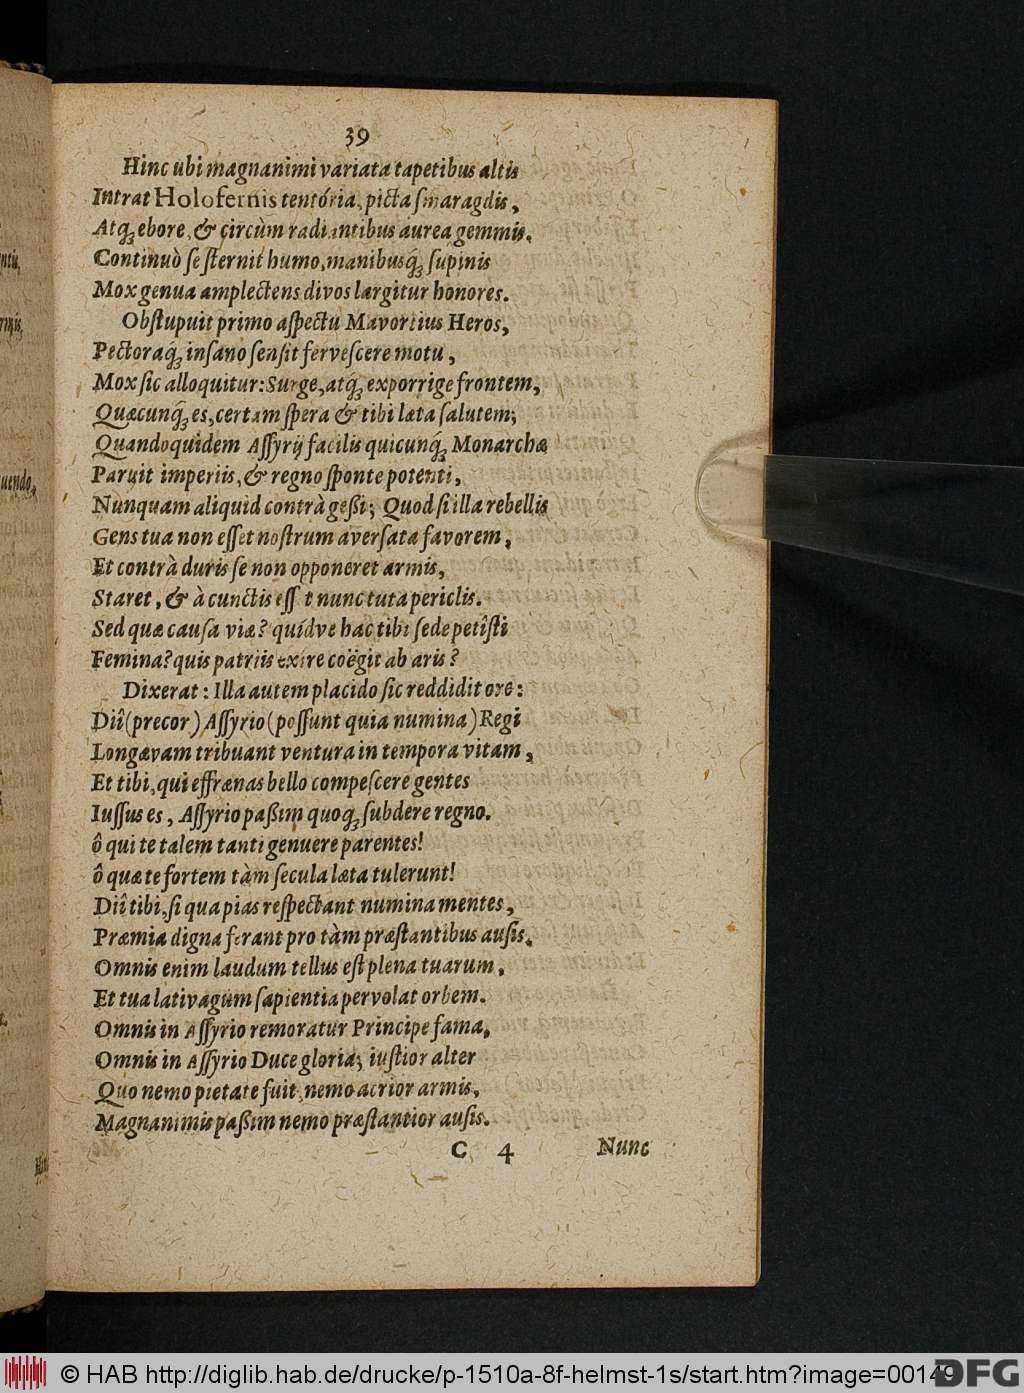 39
Hinc ubi magnanimi variata tapetibus altis
Intrat Holofernis tentória, picta smaragdis,
Atq; ebore, & circùm radiantibus aurea gemmis.
Continuò se sternit humo, manibusq́; supinis
Mox genua amplectens divos largitur honores.
Obstupuit primo aspectu Mavortius Heros,
Pectoraq́; insano sensit fervescere motu,
Mox sic alloquitur: Surge, atq́; exporrige frontem,
Quæcunq́; es, certam spera & tibi læta salutem;
Quandoquidem Assyrij facilis quicunq́; Monarchæ
Paruit imperiis, & regno sponte potenti,
Nunquam aliquid contrà geßi; Quod si illa rebellis
Gens tua non esset nostrum aversata favorem,
Et contrà duris se non opponeret armis,
Staret, & à cunctis ess t nunc tuta periclis.
Sed quæ causa viæ? quídve hac tibi sede petîsti
Femina? quis patriis exire coëgit ab aris?
Dixerat: Illa autem placido sic reddidit ore:
Diî (precor) Assyrio (possunt quia numina) Regi
Longævam tribuant ventura in tempora vitam,
Et tibi, qui effrænas bello compescere gentes
Iussus es, Assyrio paßim quoq; subdere regno.
ô qui te talem tanti genuere parentes!
ô quæ te fortem tàm secula læta tulerunt!
Diî tibi, si qua pias respectant numina mentes,
Præmia digna ferant pro tàm præstantibus ausis.
Omnis enim laudum tellus est plena tuarum,
Et tua lativagum sapientia pervolat orbem.
Omnis in Assyrio remoratur Principe fama,
Omnis in Assyrio Duce gloria; iustior alter
Quo nemo pietate fuit, nemo acrior armis,
Magnanimis paßim nemo præstantior ausis.
C 4 Nunc
© HAB http://diglib.hab.de/drucke/p-1510a-8f-helmst-1s/start.htm?image=00149
DFG